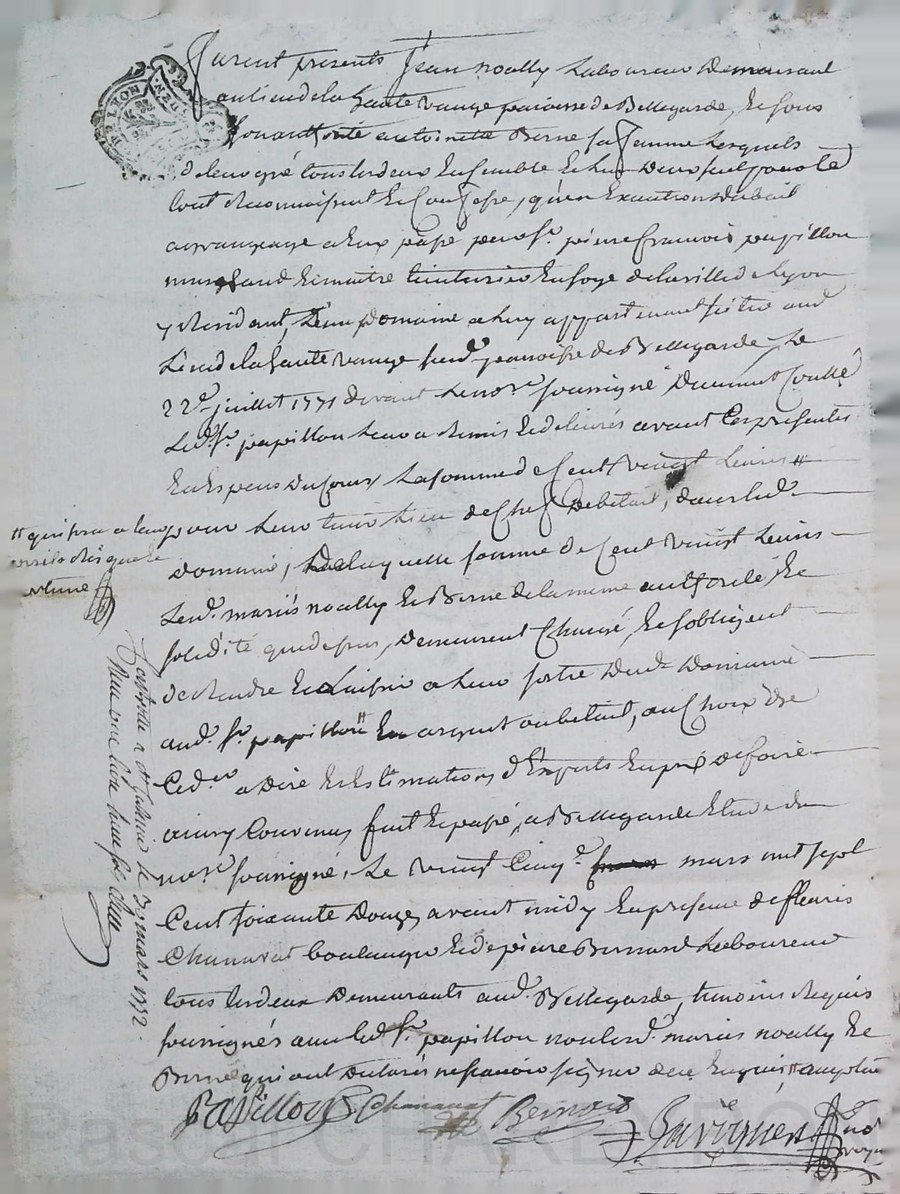 furent presents Jean noally Laboureur Demeurant
au lieu de la haute Varuge paroisse de Bellegarde, Et sous
son autorité antoinette Berne sa femme Lesquels
de leur gré tous Les deux Ensemble Et L'un Deux seul pour Le
tout Reconnoissent Et Confessé, qu'en Execution du bail
a grangeage a Eux passé par sr. pierre francois papillon
marchand Et maitre teinturier En soye de la ville de Lyon
y Residant, D'un Domaine a Luy appartenant sçitué aud.
Lieu de la haute Varuge susd. parroisse de Bellegarde, Le
22e. juillet 1771 devant Le nore. soussigné Dument Conllé
Led. sr. papillon Leur a Remis Et delivrés avant Ces presentes
En Especes Du Cours La somme de Cent Vingt Livres #
pour Leur tenir Lieu de Chef De betail, dans led.
Domaine, De laquelle somme de Cent Vingt Livres
Lesd. mariés noally Et Berne de la meme authorité, Et
solidité que dessus, Demeurent Chargé, Et s'obligent
de Rendre Et Laisser a Leur sortie Dud. Domaine
aud. sr. papillon # En argent ou betail, au Choix De
Ce der. a Dire Et Estimation d'Experts Enprés de foire
ainsy Convenu, fait Et passé, a Bellegarde Etude du
nore. soussigné, Le Vingt Cinq. mars mil sept
Cent soixante Douze avant midy En presence de fleuris
Chanavat boulanger Et de pierre Bernard Laboureur
tous Les deux Demeurants aud. Bellegarde, temoins Requis
soussignés avec led. sr. papillon non Lesd. mariés noally Et
Berne qui ont Declarés ne sçavoir signer de ce Enquis
papillon Chanavat Bernard
# qui sera a leur
Controllé a St Galmier le 31 mars 1772.
Reçu une livre
DE LYON
Pascal CHAREYRON